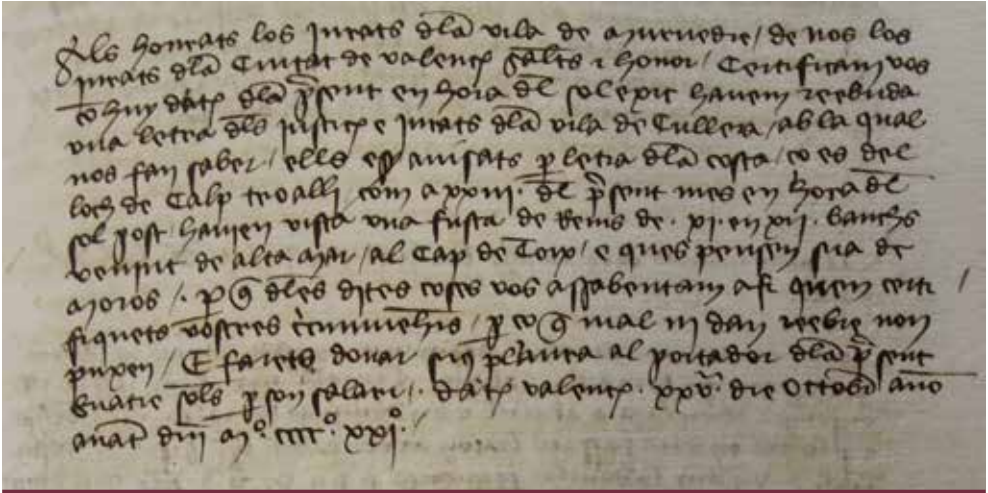 Als honrats los jurats dla vila de Murvedre / de nos los
jurats dla Ciutat de valencia saluts e honor / Certificam vos
co huy data dla psent en hora dl sol exit havem reebuda
una letra dls justicia e jurats dla vila de Cullera / ab la qual
nos fan saber / ells esser avisats p letra dla costa / co es del
loch de Calp tro alli com a xxiii. dl psent mes en hora dl
sol post havien vista una fusta de Rems de . xi. en xii. banchs
venint de alta mar / al Cap de Toix / e ques pensen sia de
moros / . p q dles dites coses vos assabentam a fi quen certi /
fiquets vostres / p co q mal ni dan reebre non
puxen / E farets donar al portador dla psent
Quatre sols p son salari / . data valencia . xxv. die Octobr anno
anat dni Mº. ccccº. xxiº. /